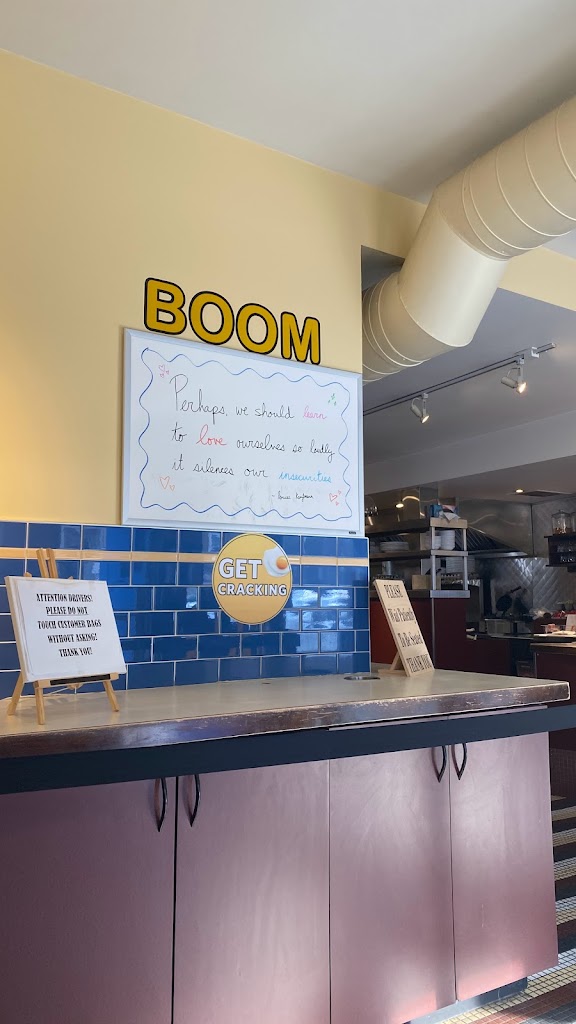 BOOM
Perhaps, we should learn
to love ourselves so loudly
it silences our insecurities
GET
CRACKING
ATTENTION DRIVERS!
PLEASE DO NOT
TOUCH CUSTOMER BAGS
WITHOUT ASKING!
THANK YOU!
PLEASE
Wait Patiently
To Be Seated
THANK YOU